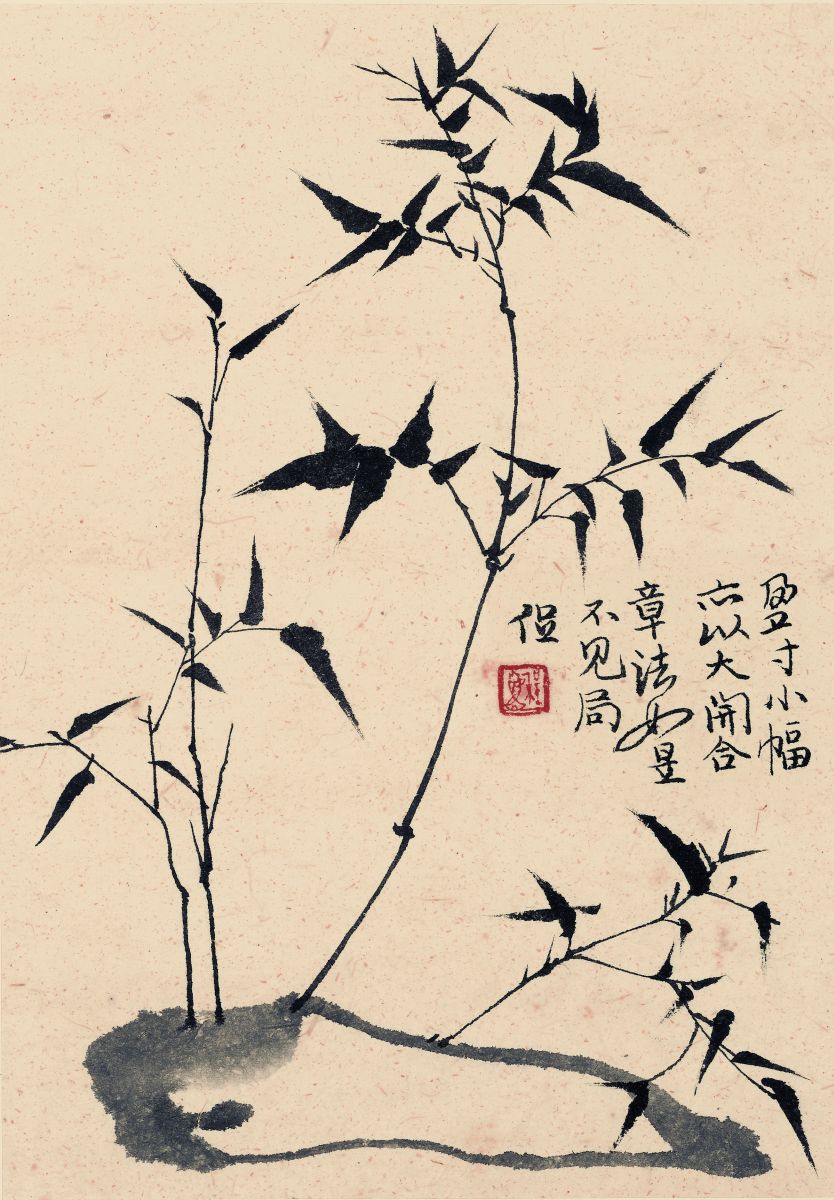 盈寸小幅
亦以大開合
章法如是
不见局